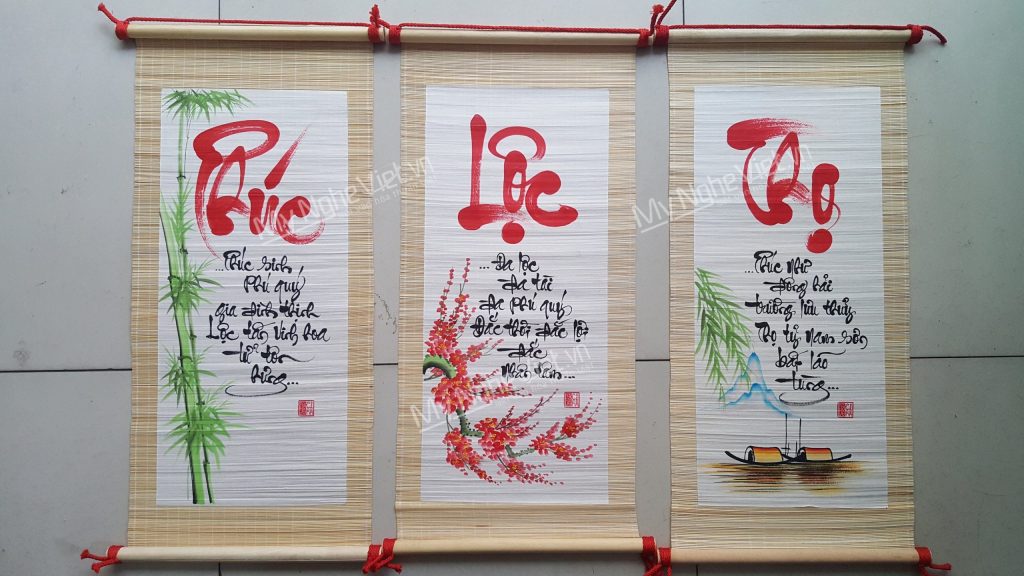 Phúc
...Phúc sinh
Phú quý
gia đình thịnh
Lộc tấn vinh hoa
tử tôn
hưng...
Lộc
...Đa lộc
Đa tài
Đa phú quý
Đắc thời đắc lộ
đắc
nhân tâm...
Thọ
...Phúc như
đông hải
trường lưu thủy
Thọ tỷ nam sơn
bất lão
tùng...
MyNgheViet.vn
MyNgheViet.vn
MyNgheViet.vn